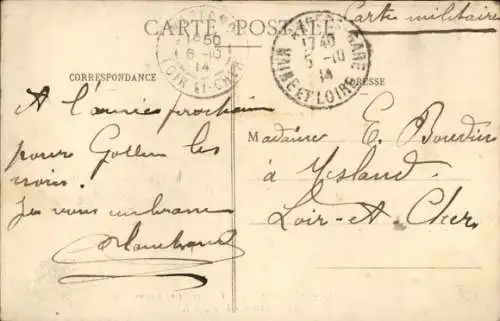 CARTE POSTALE
Carte militaire
1* 50
6 - 10
14
LOIR-ET-CHER
ANGERS-GARE
17 40
6 - 10
14
MAINE ET LOIRE
CORRESPONDANCE
ADRESSE
A l'année prochain
pour les
noix.
Je vous embrasse
Madame E. Bourdin
à Ysland
Loir-et-Cher